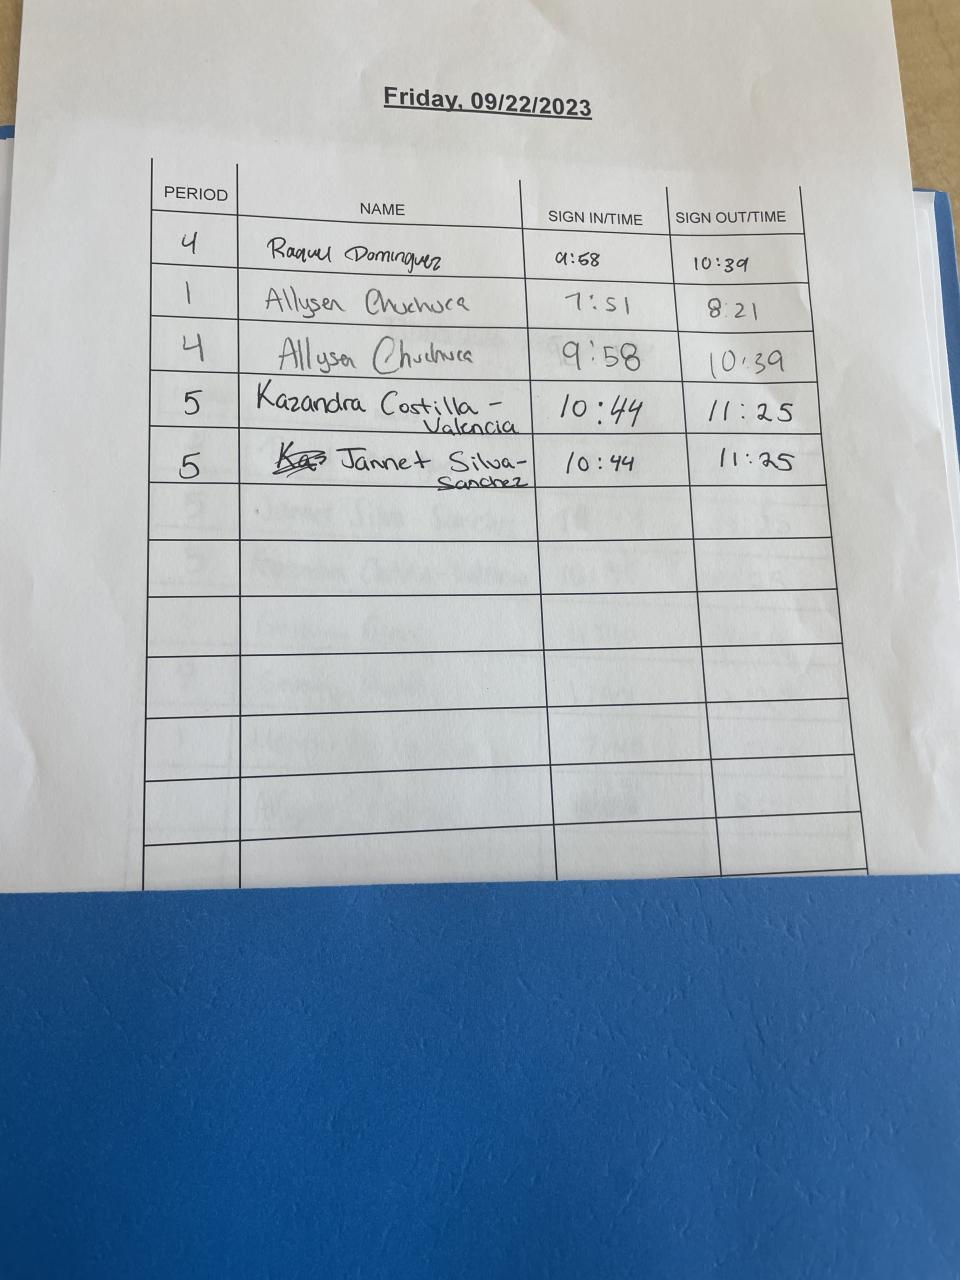 Friday, 09/22/2023
PERIOD NAME SIGN IN/TIME SIGN OUT/TIME
4 Raquel Dominguez 9:58 10:39
1 Allysen Chuchuca 7:51 8:21
4 Allysen Chuchuca 9:58 10:39
5 Kazandra Costilla - 10:44 11:25
Valencia
5 Jannet Silva- 10:44 11:25
Sanchez